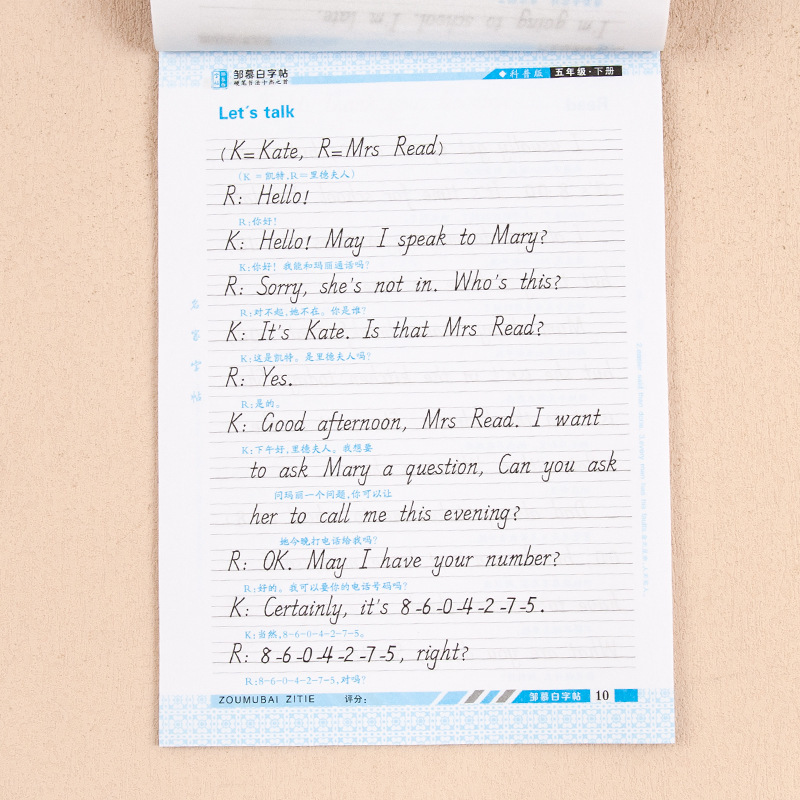 I'm going to school. I'm late.
邹慕白字帖
硬笔书法十杰之首
科普版 五年级·下册
Let's talk
(K=Kate, R=Mrs Read)
(K =凯特,R=里德夫人)
R: Hello!
R:你好!
K: Hello! May I speak to Mary?
K:你好! 我能和玛丽通话吗?
R: Sorry, she's not in. Who's this?
R:对不起,她不在。你是谁?
K: It's Kate. Is that Mrs Read?
K:这是凯特。是里德夫人吗?
R: Yes.
R:是的。
K: Good afternoon, Mrs Read. I want
K:下午好,里德夫人。我想要
to ask Mary a question, Can you ask
问玛丽一个问题,你可以让
her to call me this evening?
她今晚打电话给我吗?
R: OK. May I have your number?
R:好的。我可以要你的电话号码吗?
K: Certainly, it's 8-6-0-4-2-7-5.
K:当然,8-6-0-4-2-7-5。
R: 8-6-0-4-2-7-5, right?
R:8-6-0-4-2-7-5,对吗?
ZOUMUBAI ZITIE 评分: 邹慕白字帖 10
名家字帖